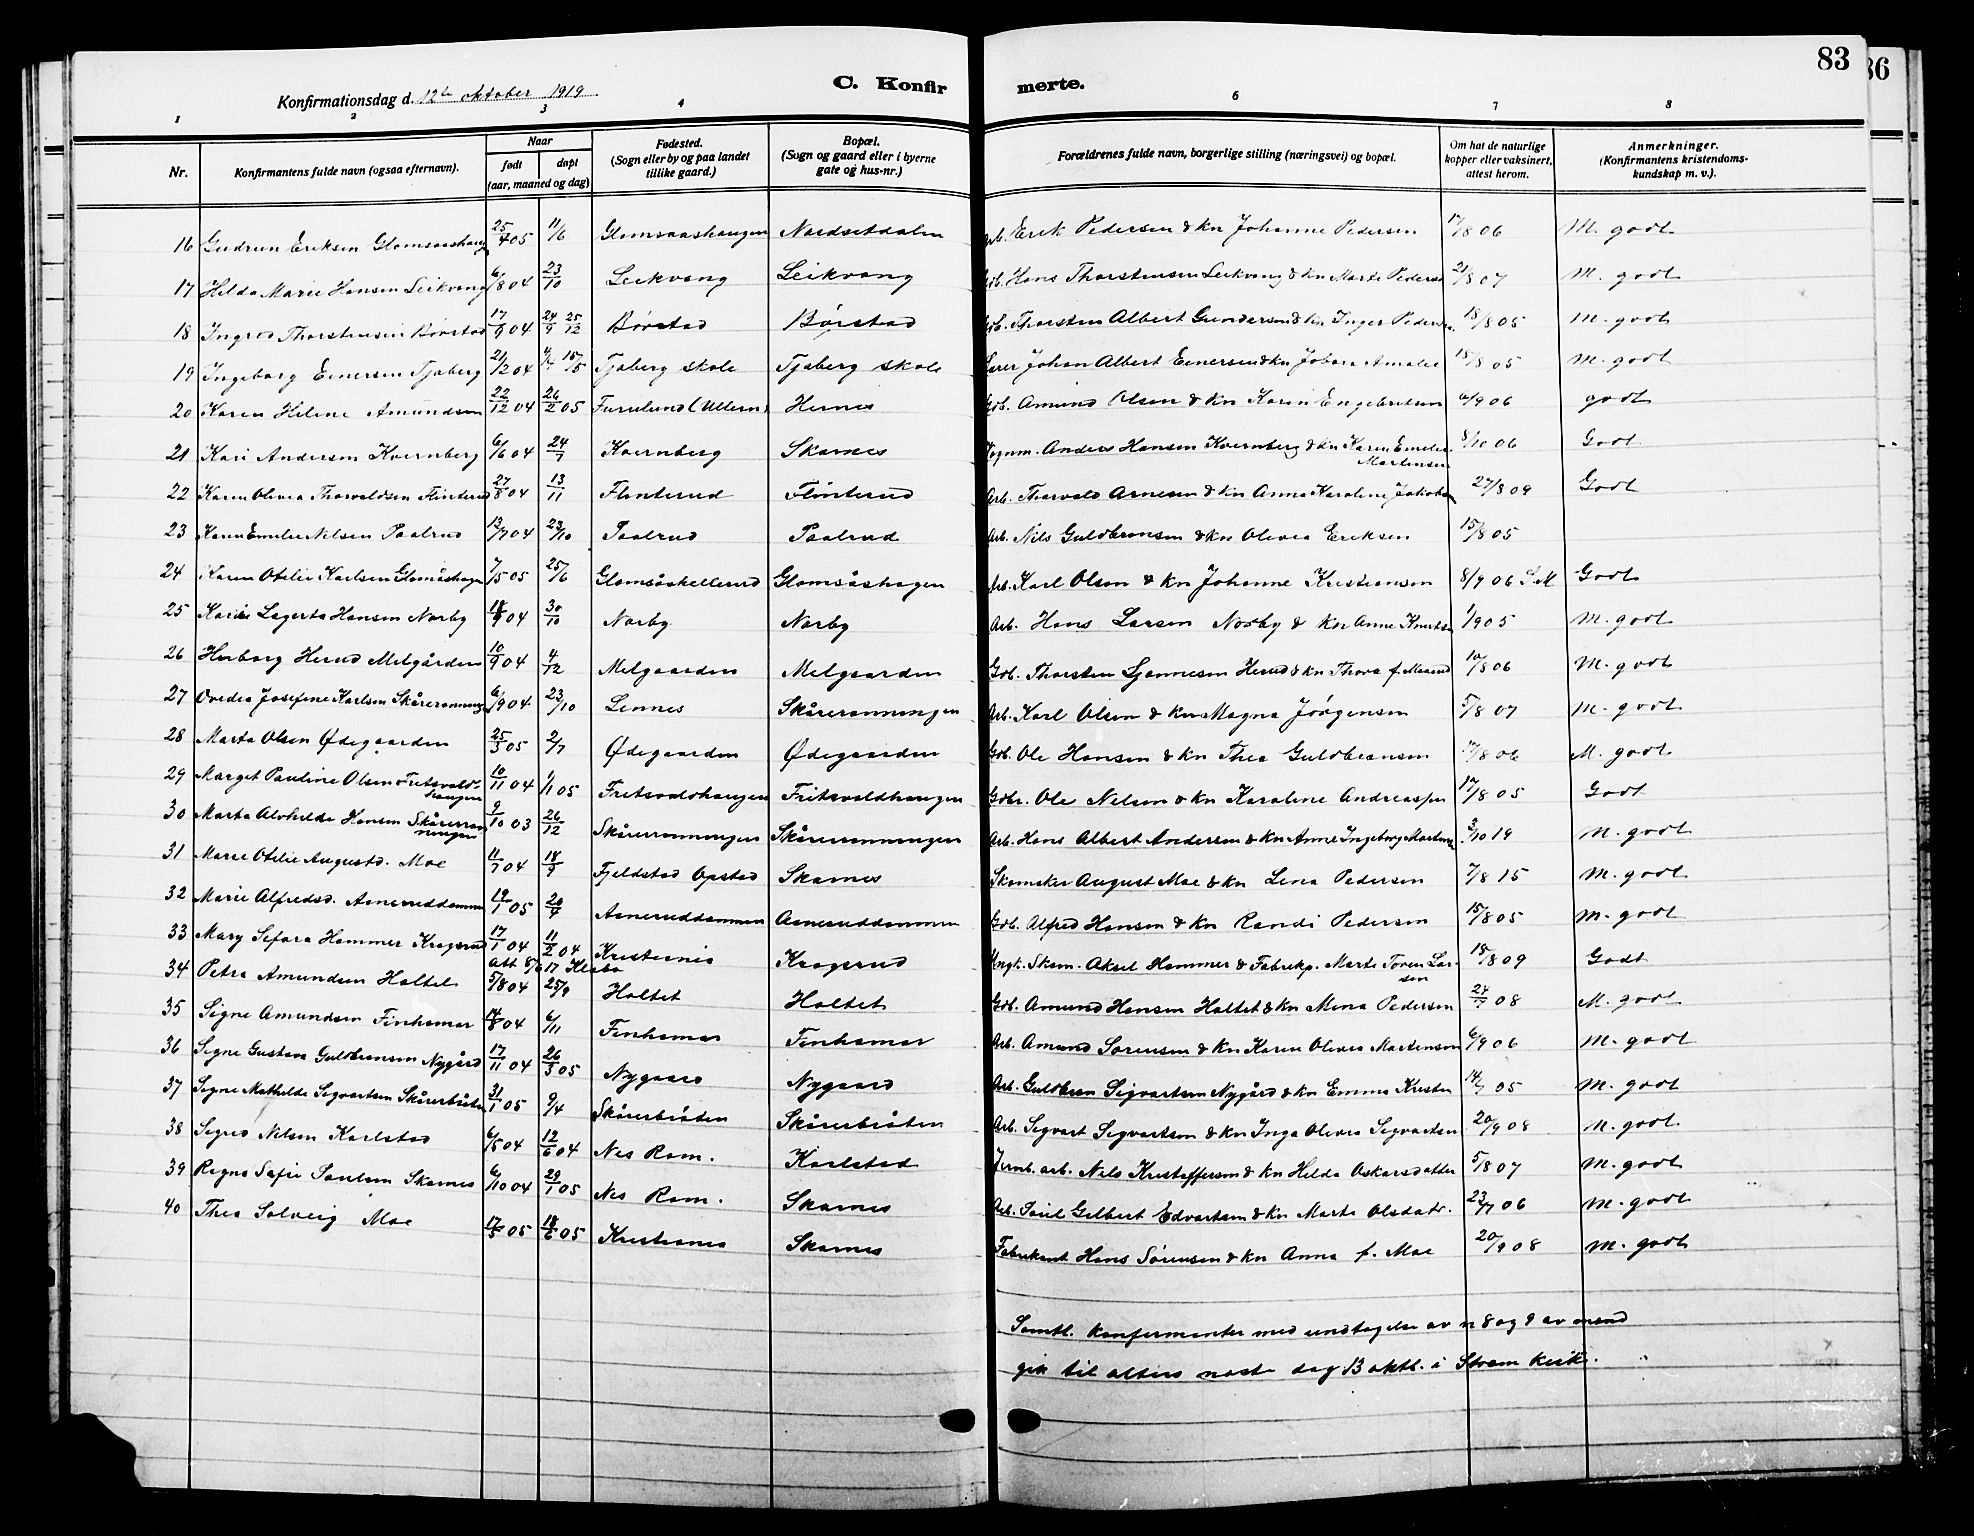 83
86
C. Konfirmerte.
Konfirmationsdag d. 12te oktober 1919
1 2 3 4 6 7 8
Nr. Konfirmantens fulde navn (ogsaa efternavn). Naar født døpt (aar, maaned og dag) Fødested. (Sogn eller by og paa landet tillike gaard.) Bopæl. (Sogn og gaard eller i byerne gate og hus-nr.) Forældrenes fulde navn, borgerlige stilling (næringsvei) og bopæl. Om hat de naturlige kopper eller vaksinert, attest herom. Anmerkninger. (Konfirmantens kristendomskundskap m. v.).
16 Gudrun Eriksen Glomsaashaug 25/4 05 11/6 Glomsaashaugen Nordsetdalen Arb. Erik Pedersen & kn Johanne Pedersen 17/8 06 M. godt
17 Hilda Marie Hansen Leikvang 6/8 04 23/10 Leikvang Leikvang Gdb. Hans Thorstensen Leikvang & kn Marte Peders 21/8 07 M. godt
18 Ingrid Thorstensen Børstad 17/9 04 Børstad Børstad Gdb. Thorsten Albert Gundersen & kn Inger Pedersen 18/8 05 M. godt
19 Ingeborg Einersen Tjaberg 21/12 04 15/5 Tjaberg skole Tjaberg skole Lærer Johan Albert Einersen & kn Amalie 18/8 05 M. godt
20 Karen Helene Amundsen 22/12 04 26/2 05 Furulund (Ullern) Hernes Gdb. Amund Olsen & kn Karin Engebretsen 6/9 06 godt
21 Kari Andersen Kvernberg 6/6 04 24/7 Kvernberg Skarnes Vognm. Anders Hansen Kvernberg & kn Karen Emelie Martensen 8/10 06 Godt
22 Karen Olivia Thorvaldsen Flinterud 27/8 04 13/11 Flinterud Flinterud Arb. Thorvald Arnesen & kn Anna Karoline Jakobsen 27/8 09 Godt
23 Karen Emelie Nilsen Paalrud 13/7 04 23/10 Paalrud Paalrud Arb. Nils Guldbransen & kn Olivia Eriksen 15/8 05
24 Karen Otelie Karlsen Glomåshagen 7/5 05 25/6 Glomsåskellerud Glomsåshagen Arb. Karl Olsen & kn Johanne Kristiansen 8/9 06 S.M Godt
25 Karin Lagerta Hansen Norby 18/9 04 30/10 Norby Norby Arb. Hans Larsen Norby & kn Anne Knutsen 1/9 05 M. godt
26 Herborg Herud Melgården 10/9 04 4/12 Melgaarden Melgaarden Gdb. Thorsten Herud & kn Thora f. Maarud 10/8 06 M. godt
27 Ovedia Josefine Karlsen Skårerønningen 6/9 04 23/10 Lennes Skårerønningen Arb. Karl Olsen & kn Magna Jørgensen 5/8 07 M. godt
28 Marta Olsen Ødegaarden 25/5 05 2/7 Ødegaarden Ødegaarden Gdb. Ole Hansen & kn Thea Guldbransen 17/8 06 M. godt
29 Marget Pauline Olsen Fritsvaldhaugen 10/11 04 1/1 05 Fritsvaldhaugen Fritsvaldhaugen Gdbr. Ole Nelsen & kn Karoline Andreassen 17/8 05 Godt
30 Marta Alvhilde Hansen Skårerønningen 9/10 03 26/12 Skårerønningen Skårerønningen Arb. Hans Albert Andersen & kn Anne Ingeborg Martinsen 3/10 19 M. godt
31 Marie Otelie Augustsd. Moe 11/7 04 18/9 Fjeldstad Opstad Skarnes Skomaker August Moe & kn Lina Pedersen 7/8 15 M. godt
32 Marie Alfredsd. Asneruddammen 19/1 05 20/4 Asneruddammen Asneruddammen Gdb. Alfred Hansen & kn Randi Pedersen 15/8 05 M. godt
33 Mary Sefora Hammer Krogsrud 17/1 04 11/2 04 Kristiania Krogsrud Ungk. Skom. Aksel Hammer & Fabrikp. Marte Toren Larsen 18/8 09 Godt
34 Petra Amundsen Holtet 5/8 04 25/9 Holtet Holtet Gdb. Amund Hansen Holtet & kn Mina Pedersen 24/7 08 M. godt
35 Signe Amundsen Finhamar 14/8 04 6/11 Finhamar Finhamar Arb. Amund Sørensen & kn Karen Olivia Martensen 6/9 06 M. godt
36 Signe Gustava Guldbransen Nygård 17/11 04 26/3 05 Nygaard Nygaard Arb. Guldbran Sigvartsen Nygård & kn Emma Kristen 14/7 05 M. godt
37 Signe Mathilde Sigvartsen Skårerbråten 31/1 05 9/4 Skårerbråten Skårerbråten Arb. Sigvart Sigvartsen & kn Inga Olivia Sigvartsen 20/9 08 M. godt
38 Sigrid Nilsen Karlstad 6/5 04 12/6 04 Nes Rom. Karlstad Jernb. arb. Nils Kristoffersen & kn Hilda Oskarsdatter 5/8 07 M. godt
39 Ragna Sofie Paulsen Skarnes 6/10 04 29/1 05 Nes Rom. Skarnes Arb. Paul Gilbert Edvartsen & kn Marte Olsdatr. 23/7 06 M. godt
40 Thea Solveig Moe 17/5 05 18/6 05 Kristiania Skarnes Fabrikant Hans Sørensen & kn Anna f. Moe 20/9 08 M. godt
Samtl. konfirmanter med undtagelse av nr 8 og 9 av mænd
gik til alters næste dag 13 oktb. i Strøm kirke.